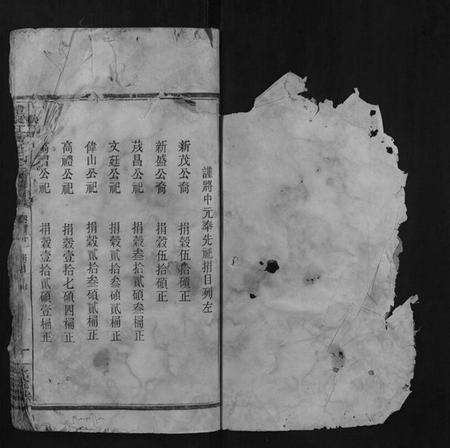 謹將中元奉先祀捐目列左
新茂公裔　捐穀伍拾碩正
新盛公裔　捐穀伍拾碩正
茂昌公祀　捐穀叁拾貳碩叁桶正
文廷公祀　捐穀貳拾叁碩貳桶正
偉山公祀　捐穀貳拾叁碩貳桶正
高禮公祀　捐穀壹拾七碩四桶正
公祀　捐穀壹拾貳碩壹桶正